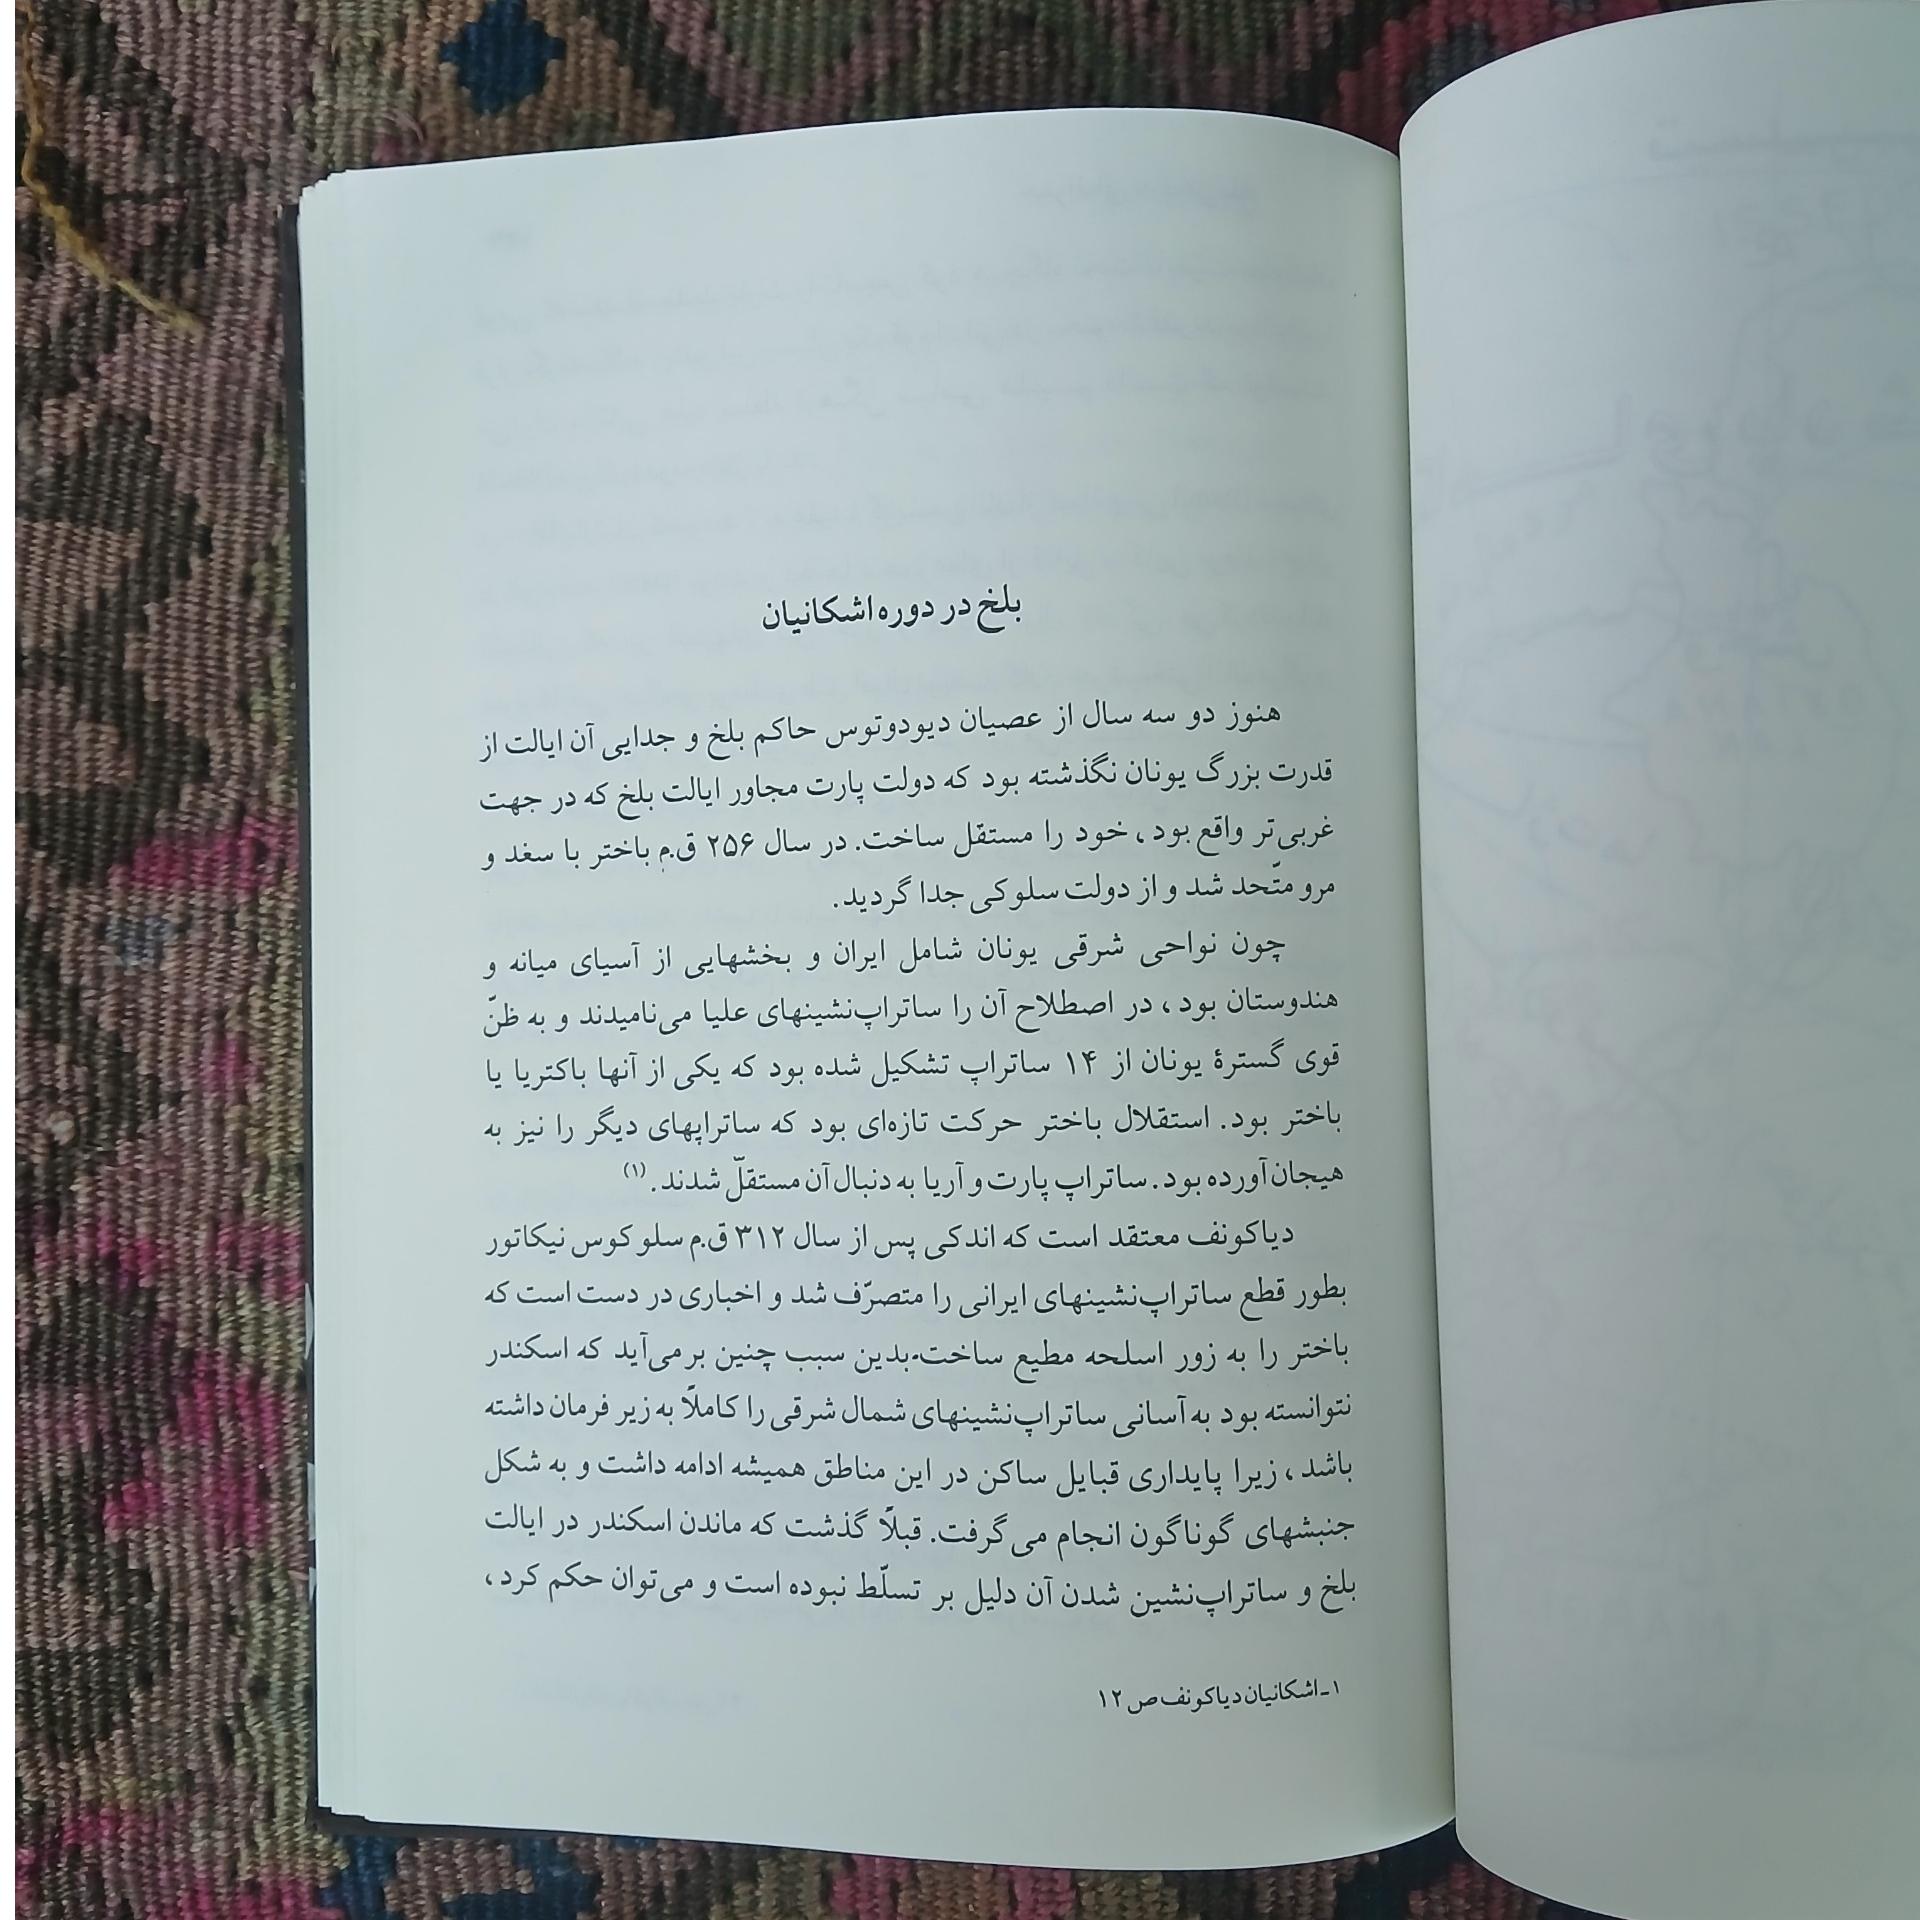 بلخ در دوره اشکانیان
هنوز دو سه سال از عصیان دیودوتوس حاکم بلخ و جدایی آن ایالت از
قدرت بزرگ یونان نگذشته بود که دولت پارت مجاور ایالت بلخ که در جهت
غربی‌تر واقع بود ، خود را مستقل ساخت. در سال ۲۵۶ ق.م باختر با سغد و
مرو متّحد شد و از دولت سلوکی جدا گردید.
چون نواحی شرقی یونان شامل ایران و بخشهایی از آسیای میانه و
هندوستان بود ، در اصطلاح آن را ساتراپ‌نشینهای علیا می‌نامیدند و به ظنّ
قوی گسترۀ یونان از ۱۴ ساتراپ تشکیل شده بود که یکی از آنها باکتریا یا
باختر بود. استقلال باختر حرکت تازه‌ای بود که ساتراپهای دیگر را نیز به
هیجان آورده بود. ساتراپ پارت و آریا به دنبال آن مستقلّ شدند. (۱)
دیاکونف معتقد است که اندکی پس از سال ۳۱۲ ق.م سلوکوس نیکاتور
بطور قطع ساتراپ‌نشینهای ایرانی را متصرّف شد و اخباری در دست است که
باختر را به زور اسلحه مطیع ساخت.بدین سبب چنین برمی‌آید که اسکندر
نتوانسته بود به آسانی ساتراپ‌نشینهای شمال شرقی را کاملاً به زیر فرمان داشته
باشد ، زیرا پایداری قبایل ساکن در این مناطق همیشه ادامه داشت و به شکل
جنبشهای گوناگون انجام می‌گرفت. قبلاً گذشت که ماندن اسکندر در ایالت
بلخ و ساتراپ‌نشین شدن آن دلیل بر تسلّط نبوده است و می‌توان حکم کرد ،
۱ـ اشکانیان دیاکونف ص ۱۲